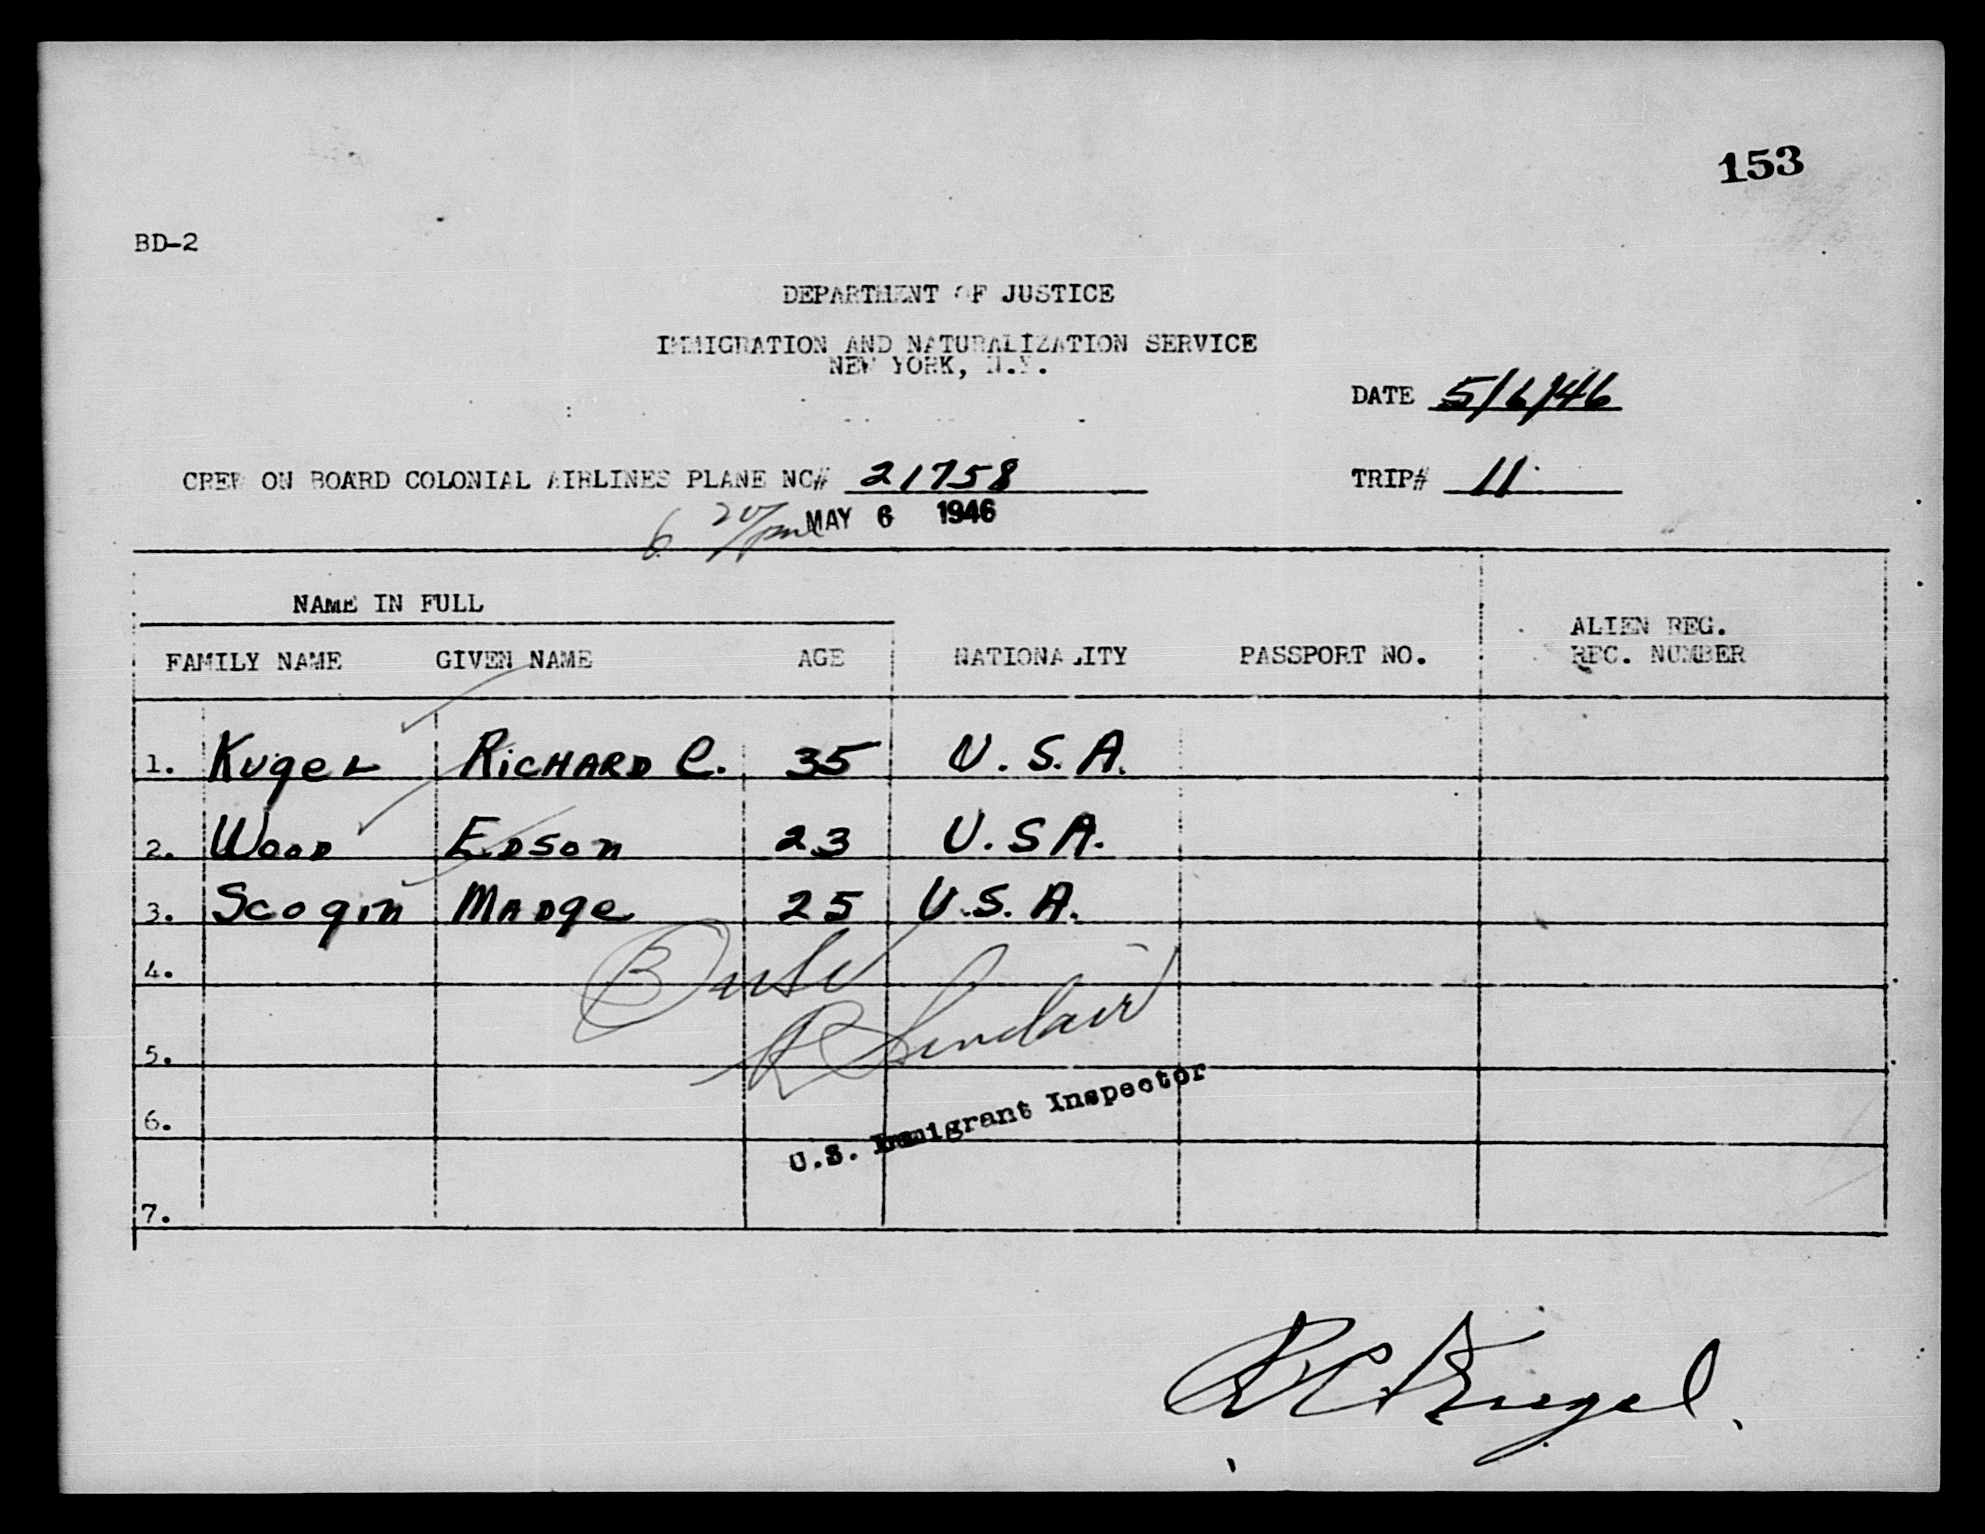 153
BD-2
DEPARTMENT OF JUSTICE
IMMIGRATION AND NATURALIZATION SERVICE
NEW YORK, N.Y.
DATE 5/6/46
CREW ON BOARD COLONIAL AIRLINES PLANE NC# 21758 TRIP# 11
6 20/pm MAY 6 1946
NAME IN FULL
FAMILY NAME GIVEN NAME AGE NATIONALITY PASSPORT NO. ALIEN REG. REC. NUMBER
1. Kugel RICHARD C. 35 U.S.A.
2. Wood EDSON 23 U.S.A.
3. Scogin MADGE 25 U.S.A.
4.
R Sinclair
5.
U.S. Immigrant Inspector
6.
7.
R C Kugel